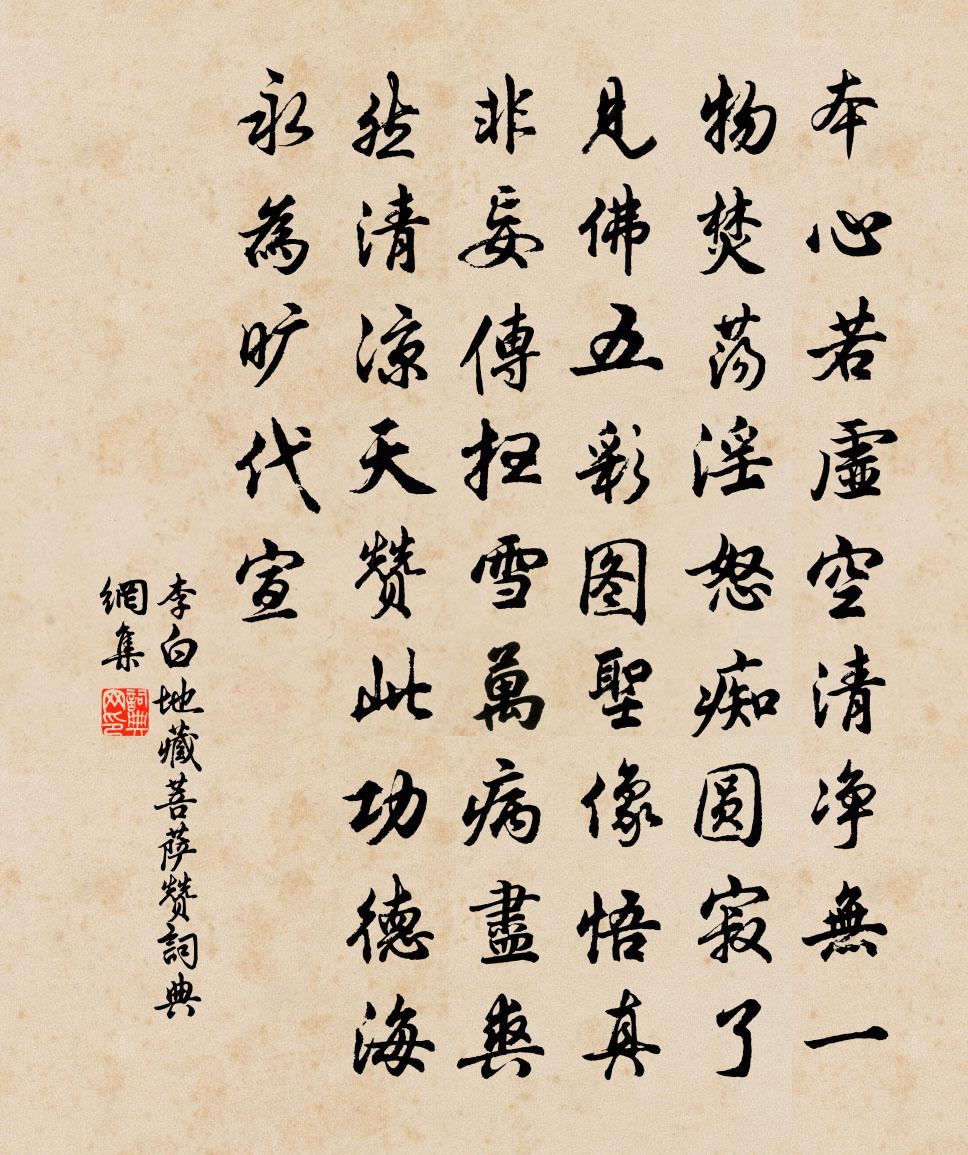 本心若虛空清净無一
物焚蕩淫怒痴圓寂了
見佛五彩图聖像悟真
非妄傳扫雪萬病盡爽
然清凉天赞此功德海
永為旷代宣
李白地藏菩萨赞詞典
網集
詞典
网印